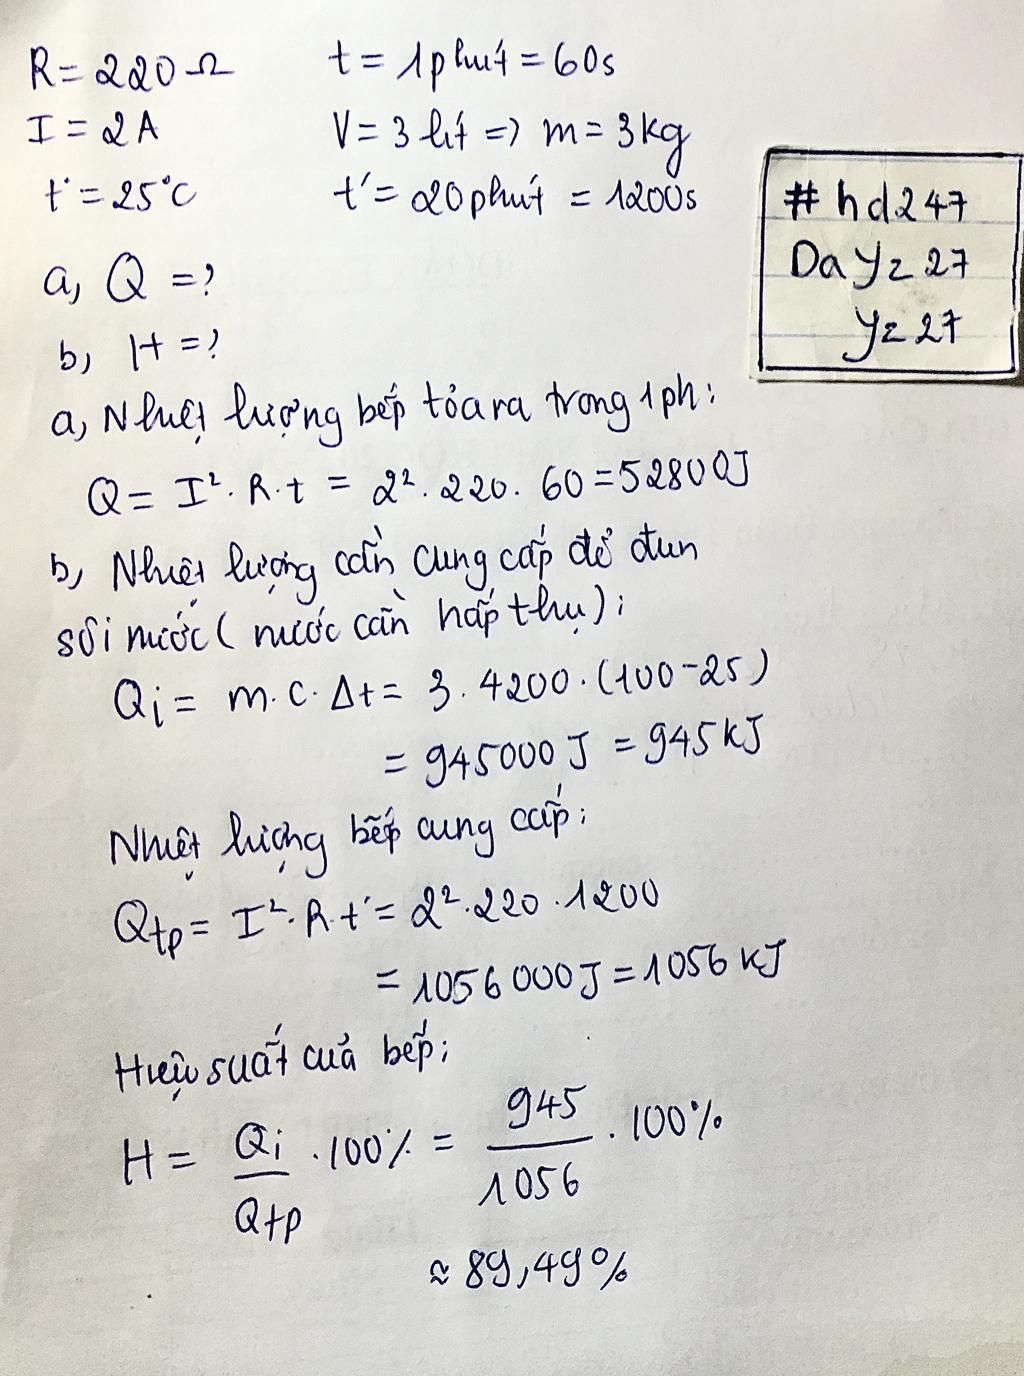 R = 220 Ω
I = 2A
t° = 25°C
t = 1 phút = 60s
V = 3 lít => m = 3kg
t' = 20 phút = 1200s
#hd247
Dayyz27
yz27
a, Q = ?
b, H = ?
a, Nhiệt lượng bếp tỏa ra trong 1 ph:
Q = I². R. t = 2². 220. 60 = 52800J
b, Nhiệt lượng cần cung cấp để đun
sôi nước (nước cần hấp thụ):
Qi = m. c. Δt = 3. 4200. (100-25)
= 945000J = 945kJ
Nhiệt lượng bếp cung cấp:
Qtp = I². R. t' = 2². 220. 1200
= 1056000J = 1056 kJ
Hiệu suất của bếp:
H = Qi/Qtp . 100% = 945/1056 . 100%
≈ 89,49%